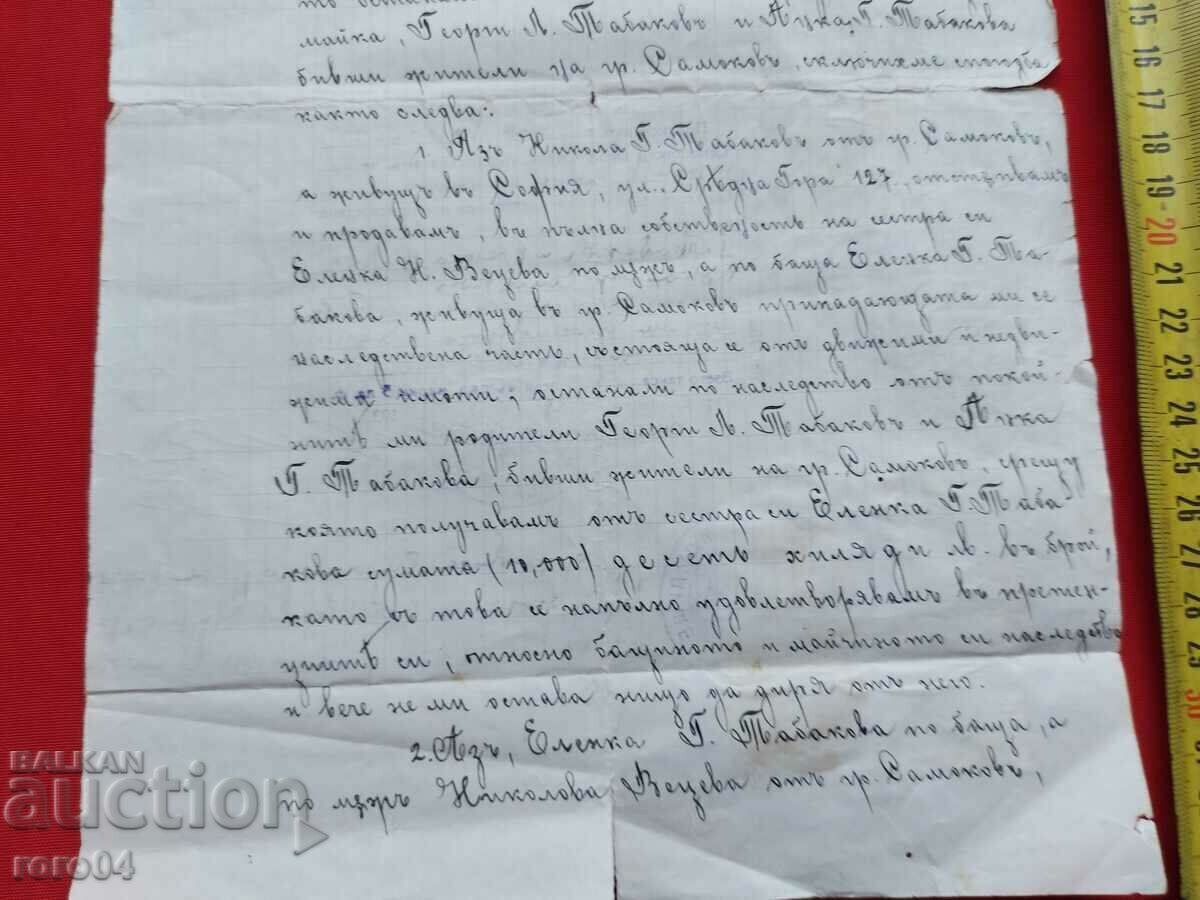 майка, Георги Л. Табаковъ и Анка Г. Табакова
бивши жители на гр. Самоковъ, сключихме спогодба
както следва:
1. Азъ Никола Г. Табаковъ отъ гр. Самоковъ,
а живущъ въ София, ул. „Срѣдна Гора 127, отстѫпвамъ
и продавамъ, въ пълна собственость на сестра си
Еленка Н. Вецева по мѫжъ, а по баща Еленка Г. Та-
бакова, живуща въ гр. Самоковъ припадающата ми се
наследствена часть, състояща се отъ движими и недви-
жими имоти, останали по наследство отъ покой-
нитѣ ми родители Георги Л. Табаковъ и Анка
Г. Табакова, бивши жители на гр. Самоковъ, срещу
която получавамъ отъ сестра си Еленка Г. Таба
кова сумата (10,000) десеть хиляди лв. въ брой,
като въ това се напълно удовлетворявамъ въ претен-
циитѣ си, относно бащиното и майчиното си наследство
и вече не ми остава нищо да диря отъ него.
2. Азъ, Еленка Г. Табакова по баща, а
по мѫжъ Николова Вецева отъ гр. Самоковъ,
15 16 17 18 19 20 21 22 23 24 25 26 27 28 29 30
BALKAN
auction
roro04